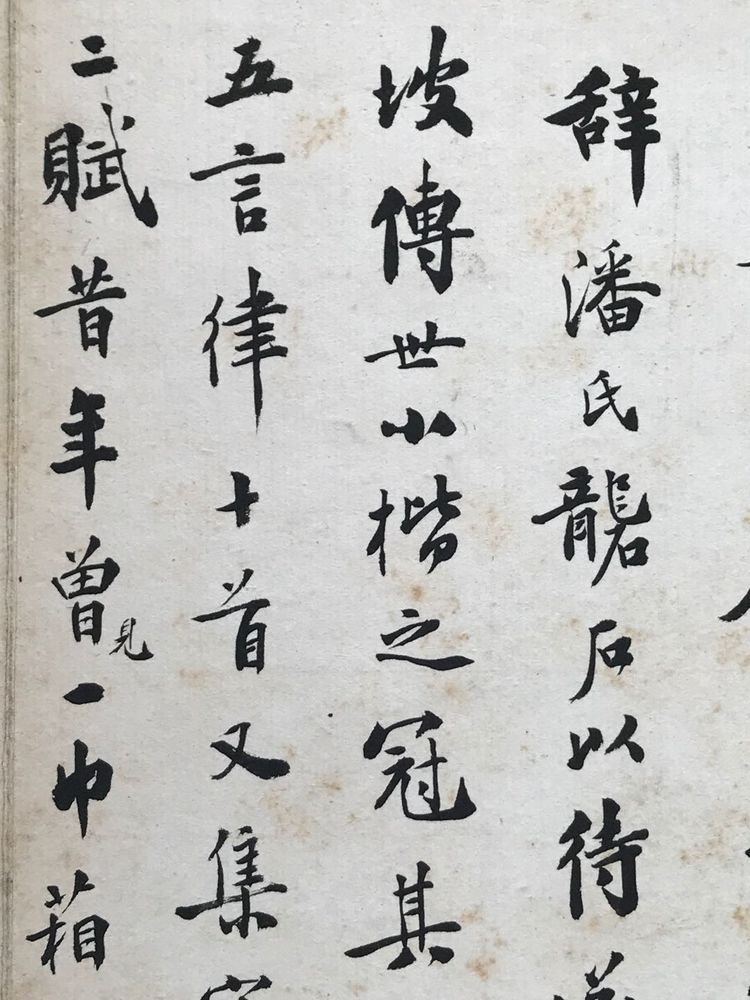 辞潘氏礱石以待
坡傳世小楷之冠其
五言律十首又集
二賦昔年曾見一巾箱